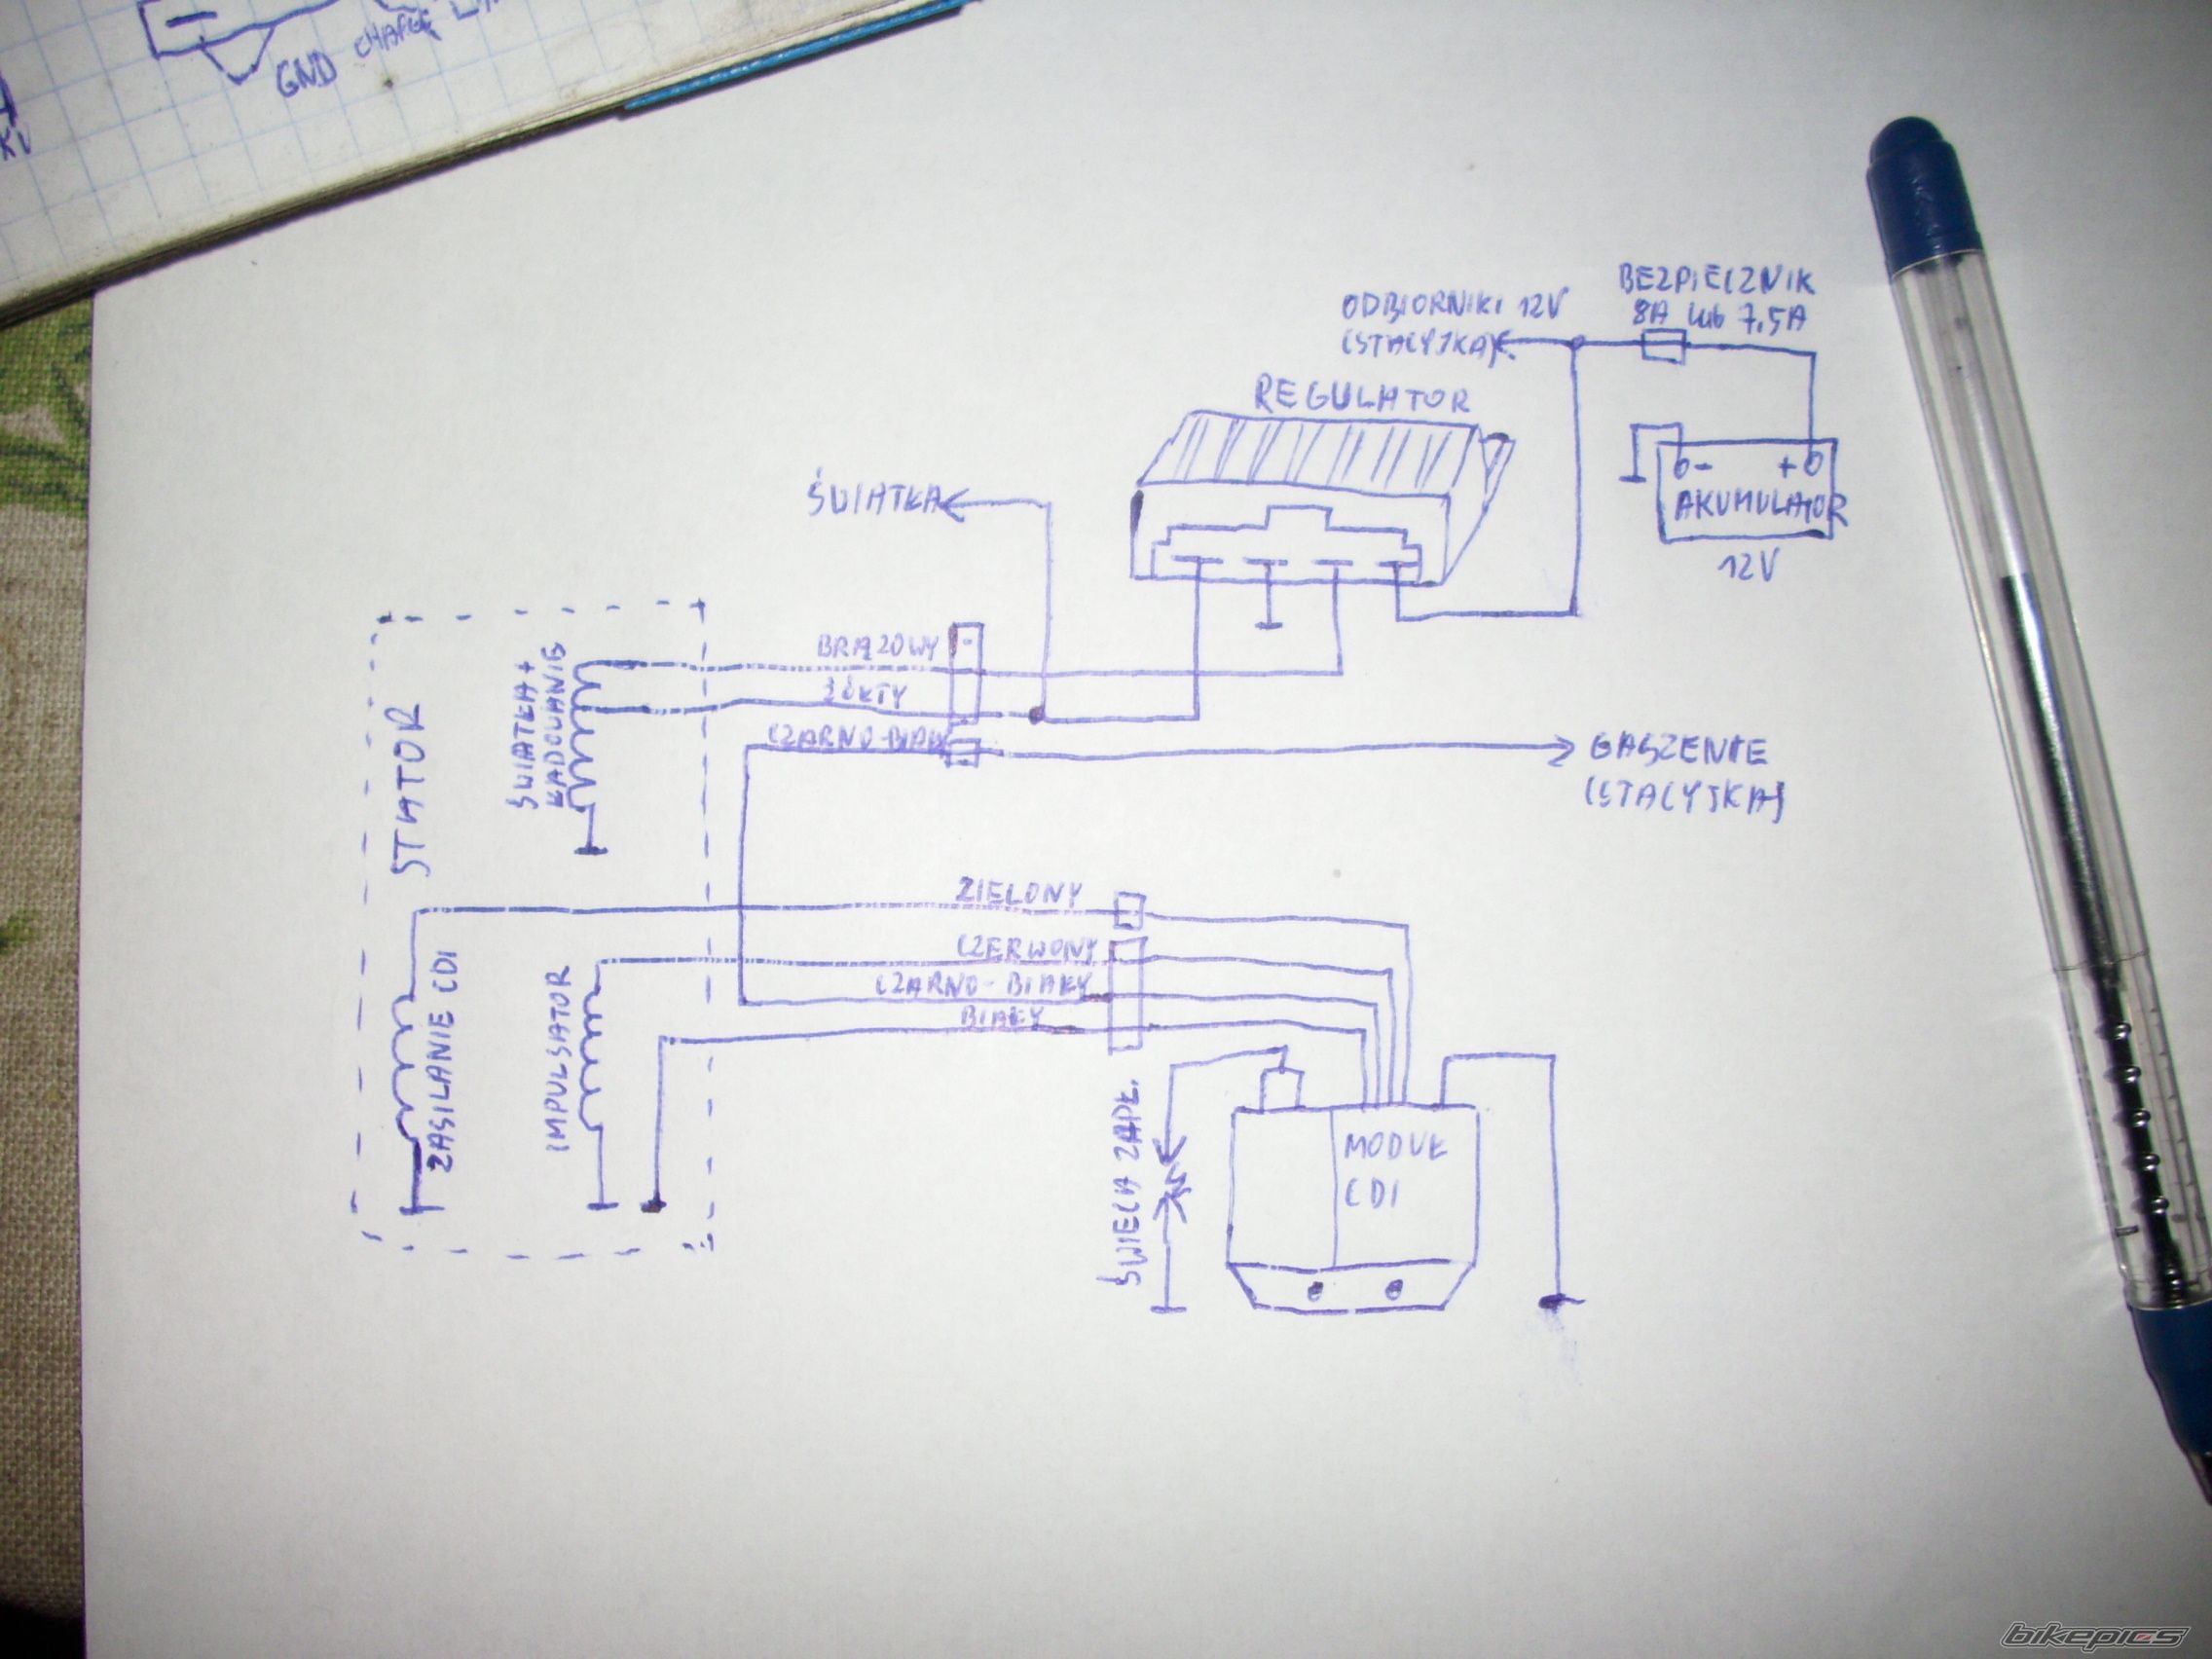 GND CHARGE
KU
ODBIORNIKI 12V
(STACYJKA)
BEZPIECZNIK
8A lub 7,5A
REGULATOR
- +
AKUMULATOR
12V
ŚWIATŁA
BRĄZOWY
ŻÓŁTY
CZARNO-BIAŁY
GASZENIE
(STACYJKA)
STATOR
ŚWIATŁA +
ŁADOWANIE
ZIELONY
CZERWONY
CZARNO-BIAŁY
BIAŁY
ZASILANIE CDI
IMPULSATOR
ŚWIECA ZAPŁ.
MODUŁ
CDI
bikepics